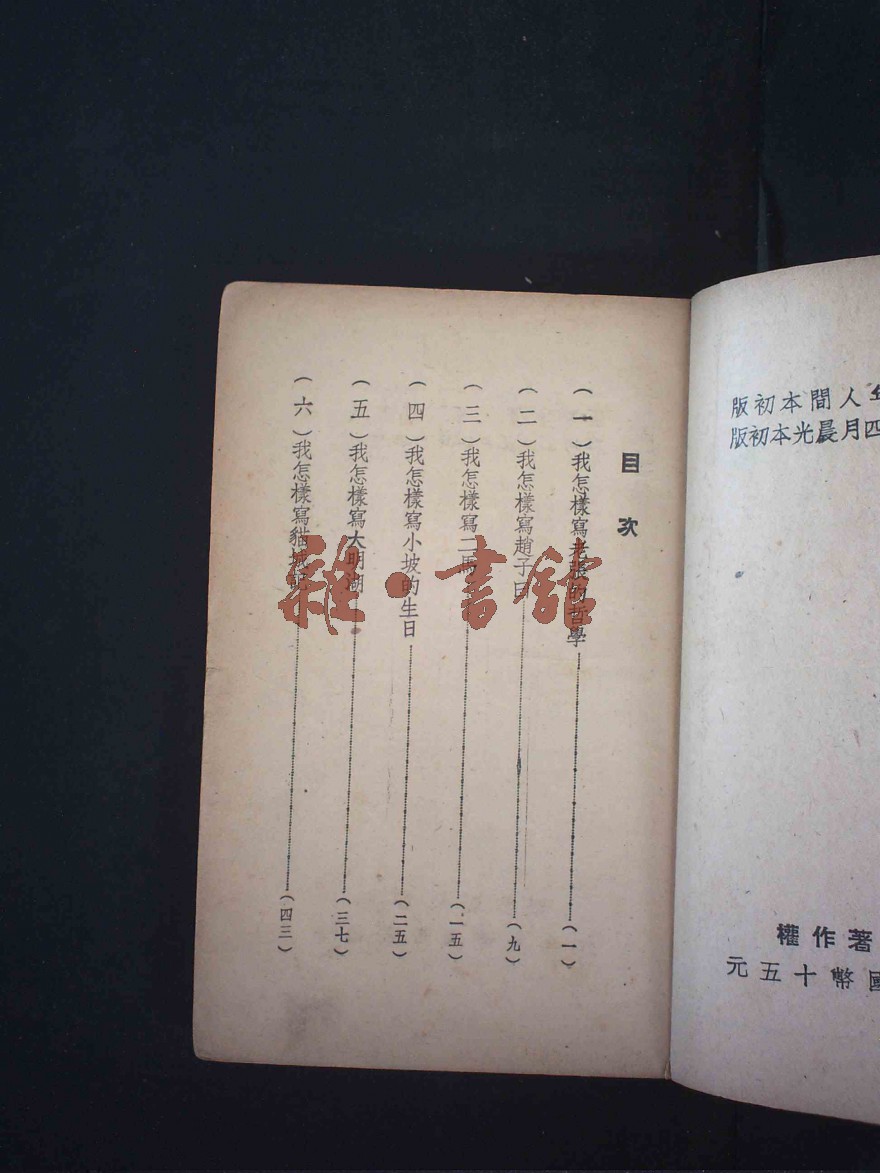 年人間本初版
四月晨光本初版
著作權
國幣十五元
目次
(一)我怎樣寫老張的哲學……(一)
(二)我怎樣寫趙子曰……(九)
(三)我怎樣寫二馬……(一五)
(四)我怎樣寫小坡的生日……(二五)
(五)我怎樣寫大明湖……(三七)
(六)我怎樣寫貓城記……(四三)
雜·書館